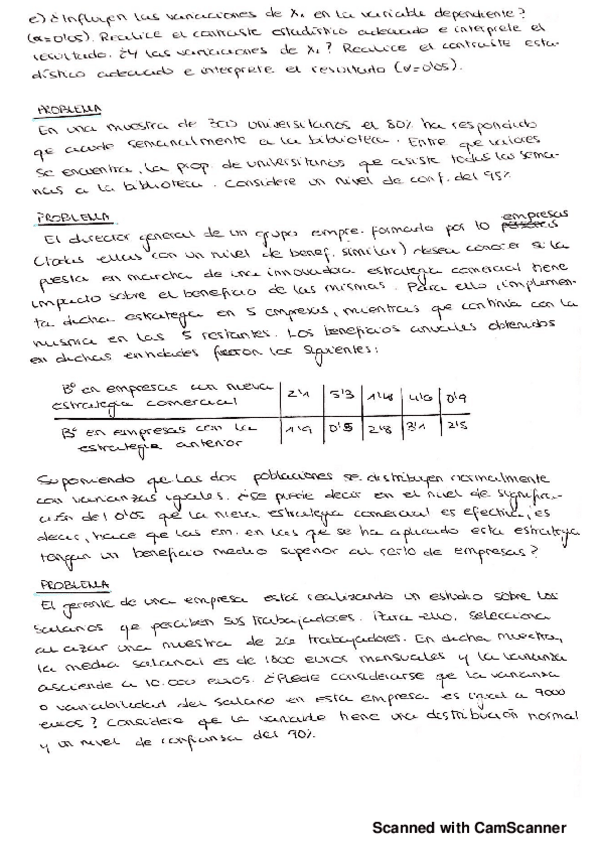 e) ¿Influyen las variaciones de X₁ en la variable dependiente?
(α=0'05). Realice el contraste estadístico adecuado e interprete el
resultado. ¿Y las variaciones de X₁? Realice el contraste esta-
dístico adecuado e interprete el resultado (α=0'05).
PROBLEMA
En una muestra de 300 universitarios el 80% ha respondido
que acude semanalmente a la biblioteca. Entre que valores
se encuentra, la prop. de universitarios que asiste todas las sema-
nas a la biblioteca. Considere un nivel de conf. del 95%
PROBLEMA
El director general de un grupo empre. formado por 10 empresas
(todas ellas con un nivel de benef. similar) desea conocer si la
puesta en marcha de una innovadora estrategia comercial tiene
impacto sobre el beneficio de las mismas. Para ello, implemen-
ta dicha estrategia en 5 empresas, mientras que continúa con la
misma en las 5 restantes. Los beneficios anuales obtenidos
en dichas entidades fueron los siguientes:
Bº en empresas con nueva estrategia comercial 2'1 5'3 1'4 4'6 0'9
Bº en empresas con la estrategia anterior 1'9 0'5 2'8 3'1 2'5
Suponiendo que las dos poblaciones se distribuyen normalmente
con varianzas iguales. ¿Se puede decir en el nivel de signifi-
cación del 0'05 que la nueva estrategia comercial es efectiva, es
decir, hace que las em. en las que se ha aplicado esta estrategia
tengan un beneficio medio superior al resto de empresas?
PROBLEMA
El gerente de una empresa está realizando un estudio sobre los
salarios que perciben sus trabajadores. Para ello, selecciona
al azar una muestra de trabajadores. En dicha muestra,
la media salarial es de 1800 euros mensuales y la varianza
asciende a 10.000 euros. ¿Puede considerarse que la varianza
o variabilidad del salario en esta empresa es igual a 9000
euros? Considere que la variable tiene una distribución normal
y un nivel de confianza del 90%.
Scanned with CamScanner